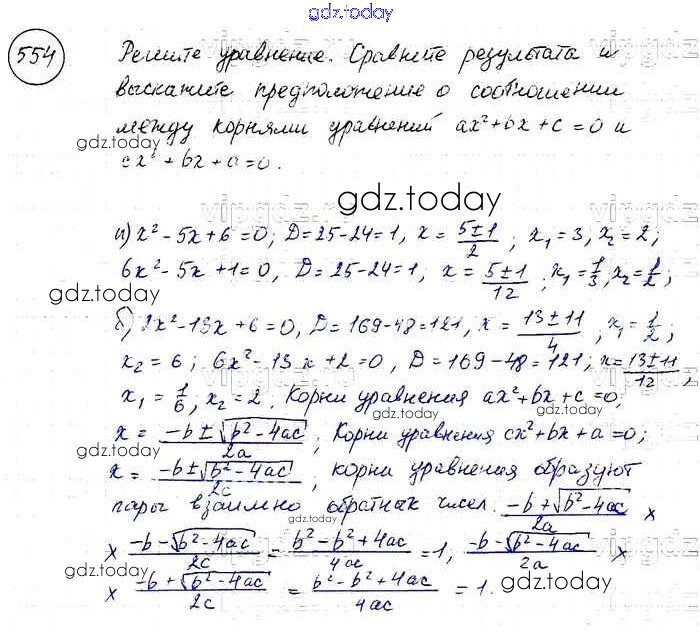 gdz.today
554 Решите уравнение. Сравните результата и
выскажите предположение о соотношении
между корнями уравнений ax²+bx+c=0 и
gdz.today
cx²+bx+a=0.
gdz.today
а) x²-5x+6=0; D=25-24=1, x = (5±1)/2 ; x₁=3, x₂=2;
6x²-5x+1=0, D=25-24=1, x = (5±1)/12 ; x₁=1/3, x₂=1/2;
gdz.today
б) 2x²-13x+6=0, D=169-48=121, x = (13±11)/4 ; x₁=1/2;
x₂=6; 6x²-13x+2=0, D=169-48=121; x=(13±11)/12,
x₁=1/6, x₂=2. Корни уравнения ax²+bx+c=0;
gdz.today gdz.today
x = (-b±√(b²-4ac))/2a ; Корни уравнения cx²+bx+a=0;
x = (-b±√(b²-4ac))/2c , корни уравнения образуют
пары взаимно обратных чисел. (-b+√(b²-4ac))/2a ×
gdz.today
× (-b-√(b²-4ac))/2c = (b²-b²+4ac)/4ac = 1, (-b-√(b²-4ac))/2a ×
gdz.today gdz.today
× (-b+√(b²-4ac))/2c = (b²-b²+4ac)/4ac = 1.